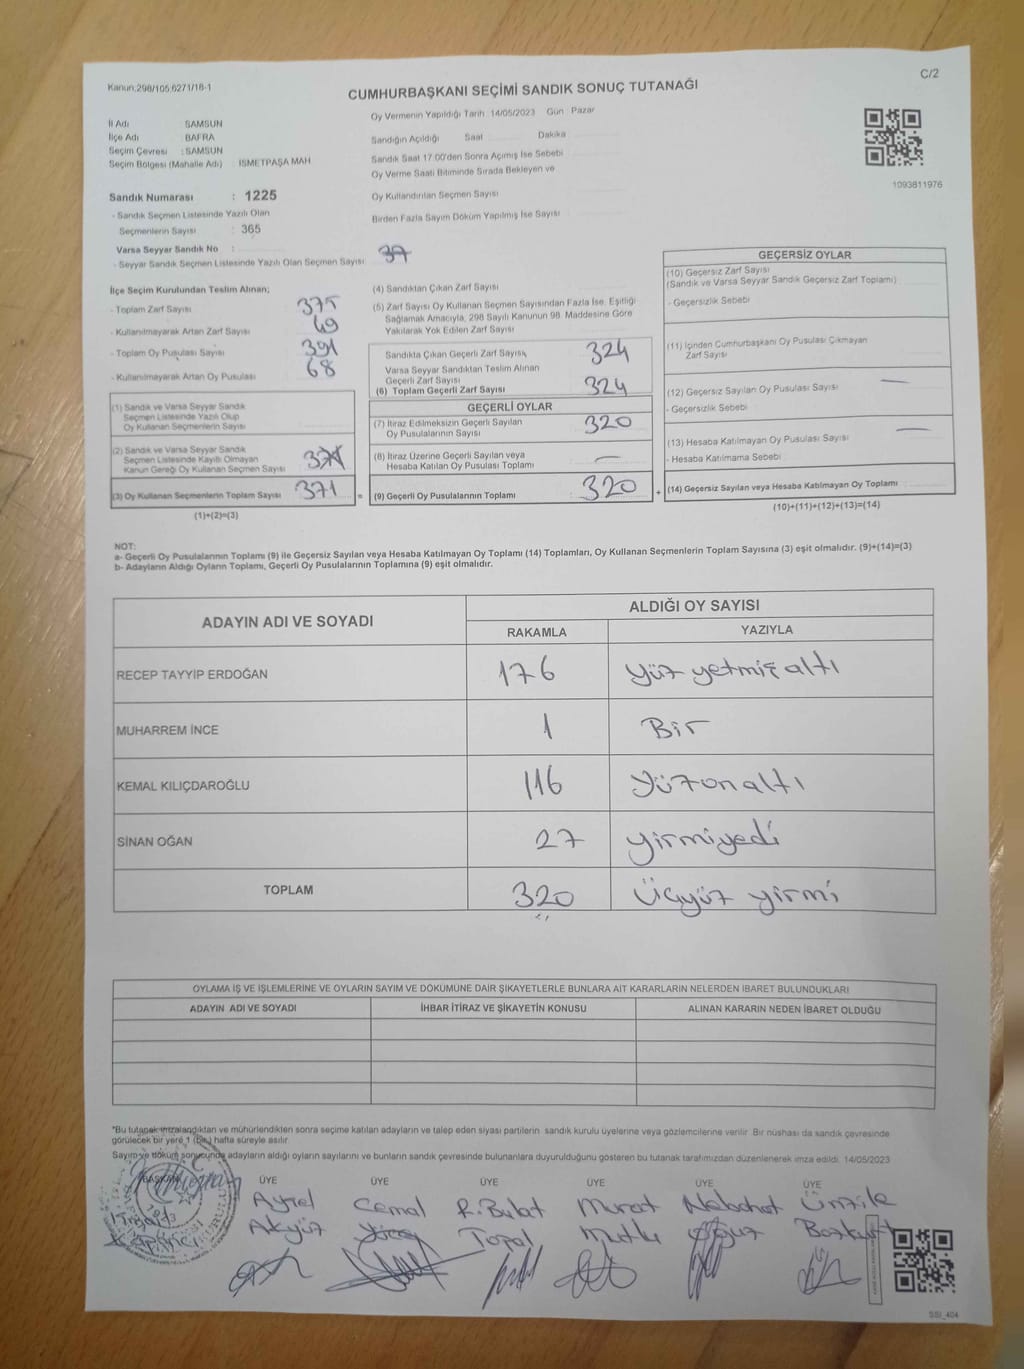 Kanun:298/105,6271/18-1
C/2
CUMHURBAŞKANI SEÇİMİ SANDIK SONUÇ TUTANAĞI
İl Adı SAMSUN
İlçe Adı BAFRA
Seçim Çevresi : SAMSUN
Seçim Bölgesi (Mahalle Adı) : ISMETPAŞA MAH
Sandık Numarası : 1225
- Sandık Seçmen Listesinde Yazılı Olan
Seçmenlerin Sayısı : 365
Varsa Seyyar Sandık No :
- Seyyar Sandık Seçmen Listesinde Yazılı Olan Seçmen Sayısı
Oy Vermenin Yapıldığı Tarih 14/05/2023 Gün Pazar
Sandığın Açıldığı Saat Dakika
Sandık Saat 17.00'den Sonra Açımış İse Sebebi
Oy Verme Saati Bitiminde Sırada Bekleyen ve
Oy Kullandırılan Seçmen Sayısı
Birden Fazla Sayım Döküm Yapılmış İse Sayısı
1093811976
İlçe Seçim Kurulundan Teslim Alınan;
- Toplam Zarf Sayısı 375
- Kullanılmayarak Artan Zarf Sayısı 69
- Toplam Oy Pusulası Sayısı 391
- Kullanılmayarak Artan Oy Pusulası 68
(1) Sandık ve Varsa Seyyar Sandık
Seçmen Listesinde Yazılı Olup
Oy Kullanan Seçmenlerin Sayısı
(2) Sandık ve Varsa Seyyar Sandık
Seçmen Listesinde Kayıtlı Olmayan
Kanun Gereği Oy Kullanan Seçmen Sayısı
(3) Oy Kullanan Seçmenlerin Toplam Sayısı 371 =
(1)+(2)=(3)
(4) Sandıktan Çıkan Zarf Sayısı
(5) Zarf Sayısı Oy Kullanan Seçmen Sayısından Fazla İse, Eşitliği
Sağlamak Amacıyla, 298 Sayılı Kanunun 98. Maddesine Göre
Yakılarak Yok Edilen Zarf Sayısı
Sandıkta Çıkan Geçerli Zarf Sayısı 324
Varsa Seyyar Sandıktan Teslim Alınan
Geçerli Zarf Sayısı
(6) Toplam Geçerli Zarf Sayısı 324
GEÇERLİ OYLAR
(7) İtiraz Edilmeksizin Geçerli Sayılan
Oy Pusulalarının Sayısı 320
(8) İtiraz Üzerine Geçerli Sayılan veya
Hesaba Katılan Oy Pusulası Toplamı —
(9) Geçerli Oy Pusulalarının Toplamı 320 +
GEÇERSİZ OYLAR
(10) Geçersiz Zarf Sayısı
(Sandık ve Varsa Seyyar Sandık Geçersiz Zarf Toplamı)
- Geçersizlik Sebebi
(11) İçinden Cumhurbaşkanı Oy Pusulası Çıkmayan
Zarf Sayısı
(12) Geçersiz Sayılan Oy Pusulası Sayısı —
- Geçersizlik Sebebi
(13) Hesaba Katılmayan Oy Pusulası Sayısı —
- Hesaba Katılmama Sebebi
(14) Geçersiz Sayılan veya Hesaba Katılmayan Oy Toplamı
(10)+(11)+(12)+(13)=(14)
NOT:
a- Geçerli Oy Pusulalarının Toplamı (9) ile Geçersiz Sayılan veya Hesaba Katılmayan Oy Toplamı (14) Toplamları, Oy Kullanan Seçmenlerin Toplam Sayısına (3) eşit olmalıdır. (9)+(14)=(3)
b- Adayların Aldığı Oyların Toplamı, Geçerli Oy Pusulalarının Toplamına (9) eşit olmalıdır.
ADAYIN ADI VE SOYADI
ALDIĞI OY SAYISI
RAKAMLA YAZIYLA
RECEP TAYYİP ERDOĞAN 176 Yüz yetmiş altı
MUHARREM İNCE 1 Bir
KEMAL KILIÇDAROĞLU 116 Yüzonaltı
SİNAN OĞAN 27 yirmiyedi
TOPLAM 320 Üçyüz yirmi
OYLAMA İŞ VE İŞLEMLERİNE VE OYLARIN SAYIM VE DÖKÜMÜNE DAİR ŞİKAYETLERLE BUNLARA AİT KARARLARIN NELERDEN İBARET BULUNDUKLARI
ADAYIN ADI VE SOYADI İHBAR İTİRAZ VE ŞİKAYETİN KONUSU ALINAN KARARIN NEDEN İBARET OLDUĞU
*Bu tutanak imzalandıktan ve mühürlendikten sonra seçime katılan adayların ve talep eden siyasi partilerin sandık kurulu üyelerine veya gözlemcilerine verilir. Bir nüshası da sandık çevresinde
görülecek bir yere 1 (bir) hafta süreyle asılır.
Sayım ve döküm sonucunda adayların aldığı oyların sayılarını ve bunların sandık çevresinde bulunanlara duyurulduğunu gösteren bu tutanak tarafımızdan düzenlenerek imza edildi. 14/05/2023
BAŞKAN ÜYE ÜYE ÜYE ÜYE ÜYE ÜYE
Aysel Cemal R. Bulat Murat Nebahat Ümzile
Akyüz Topal Mutlu Bozkurt
SSI_404